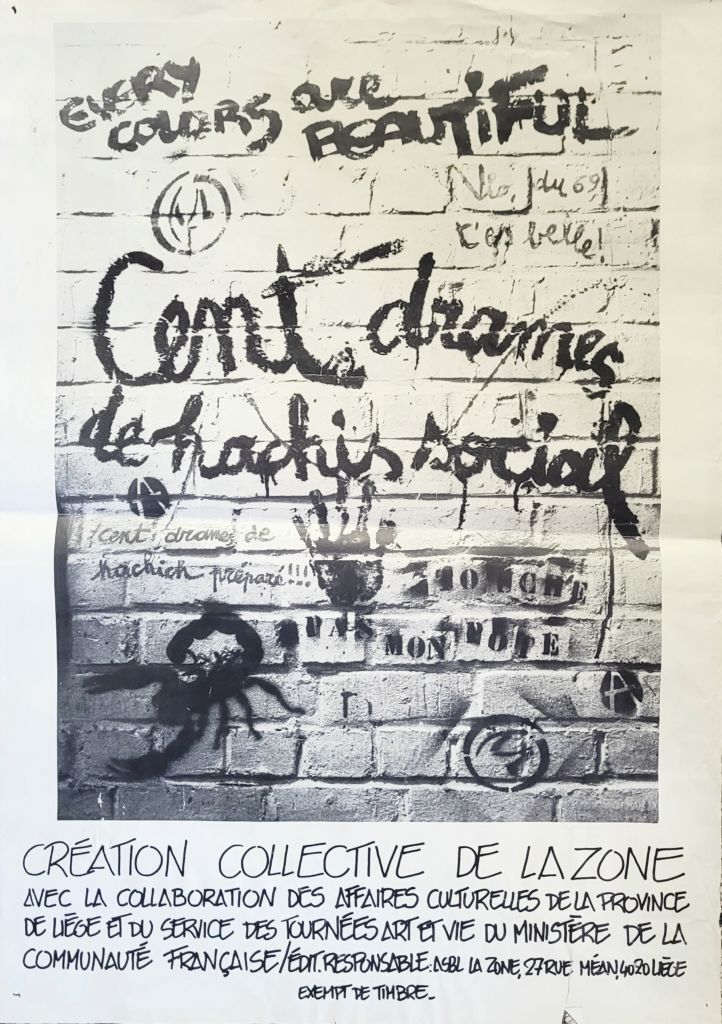 EVERY
COLORS are
BEAUTIFUL
du 69
c'es belle!
Cent drames
de hachis social
A
cent drames de
hachich préparé!!!
TOUCHE
PAS MON POTE
A
CRÉATION COLLECTIVE DE LA ZONE
AVEC LA COLLABORATION DES AFFAIRES CULTURELLES DE LA PROVINCE
DE LIÉGE ET DU SERVICE DES TOURNÉES ART ET VIE DU MINISTÈRE DE LA
COMMUNAUTÉ FRANÇAISE/ÉDIT. RESPONSABLE: ASBL LA ZONE, 27 RUE MÉAN, 4020 LIÈGE
EXEMPT DE TIMBRE_